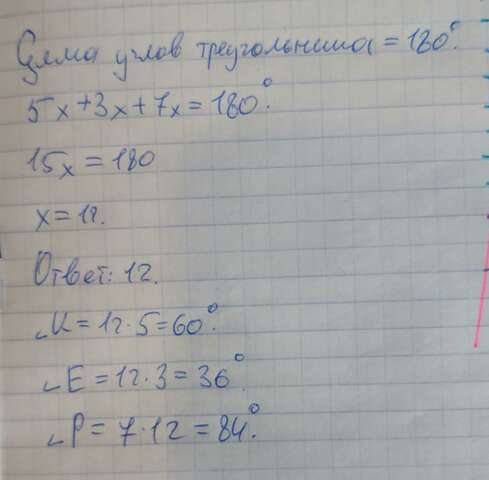 Сумма углов треугольника = 180°.
5x+3x+7x=180°.
15x=180
x=12.
Ответ: 12.
∠К=12·5=60°.
∠E=12·3=36°.
∠P=7·12=84°.